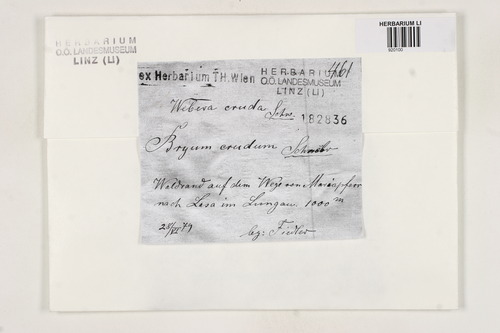 HERBARIUM LI
920100
HERBARIUM
O.Ö. LANDESMUSEUM
LINZ (LI)
ex Herbarium T.H. Wien
HERBARIUM
O.Ö. LANDESMUSEUM
LINZ (LI)
461
Webera cruda Schr.
182836
Bryum crudum Schreber
Waldrand auf dem Wege von Mariapfarr
nach Lesa im Lungau. 1000 m
79
leg: Fiedler